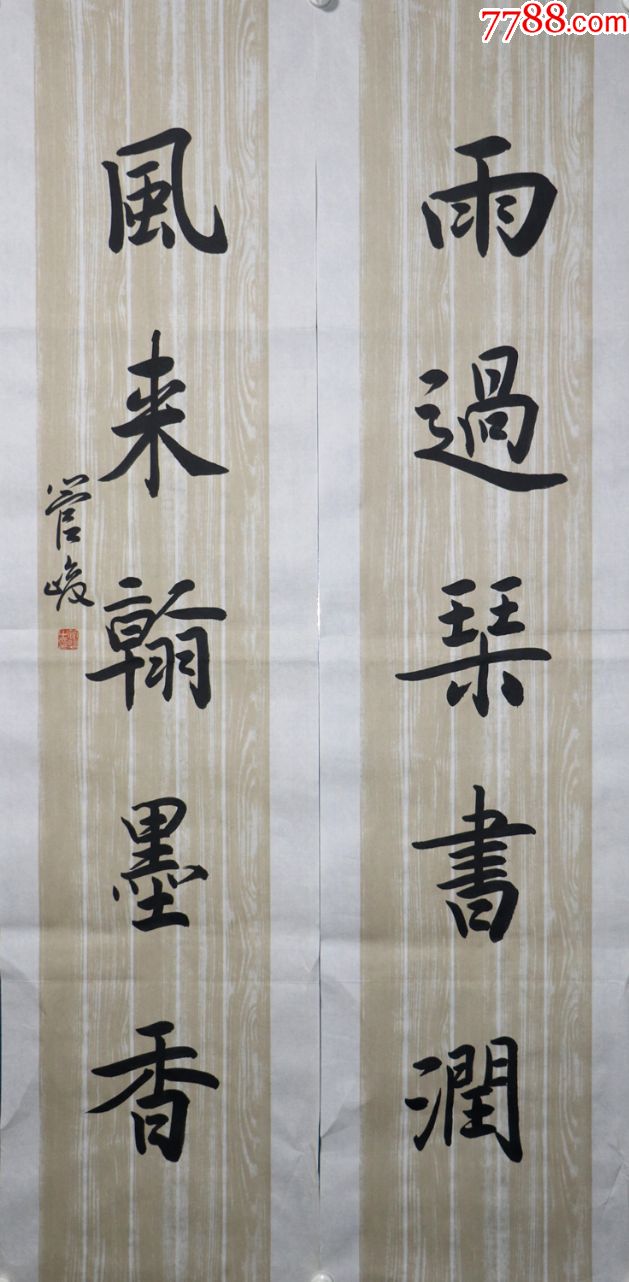 7788.com
雨過琹書潤
風来翰墨香
管峻